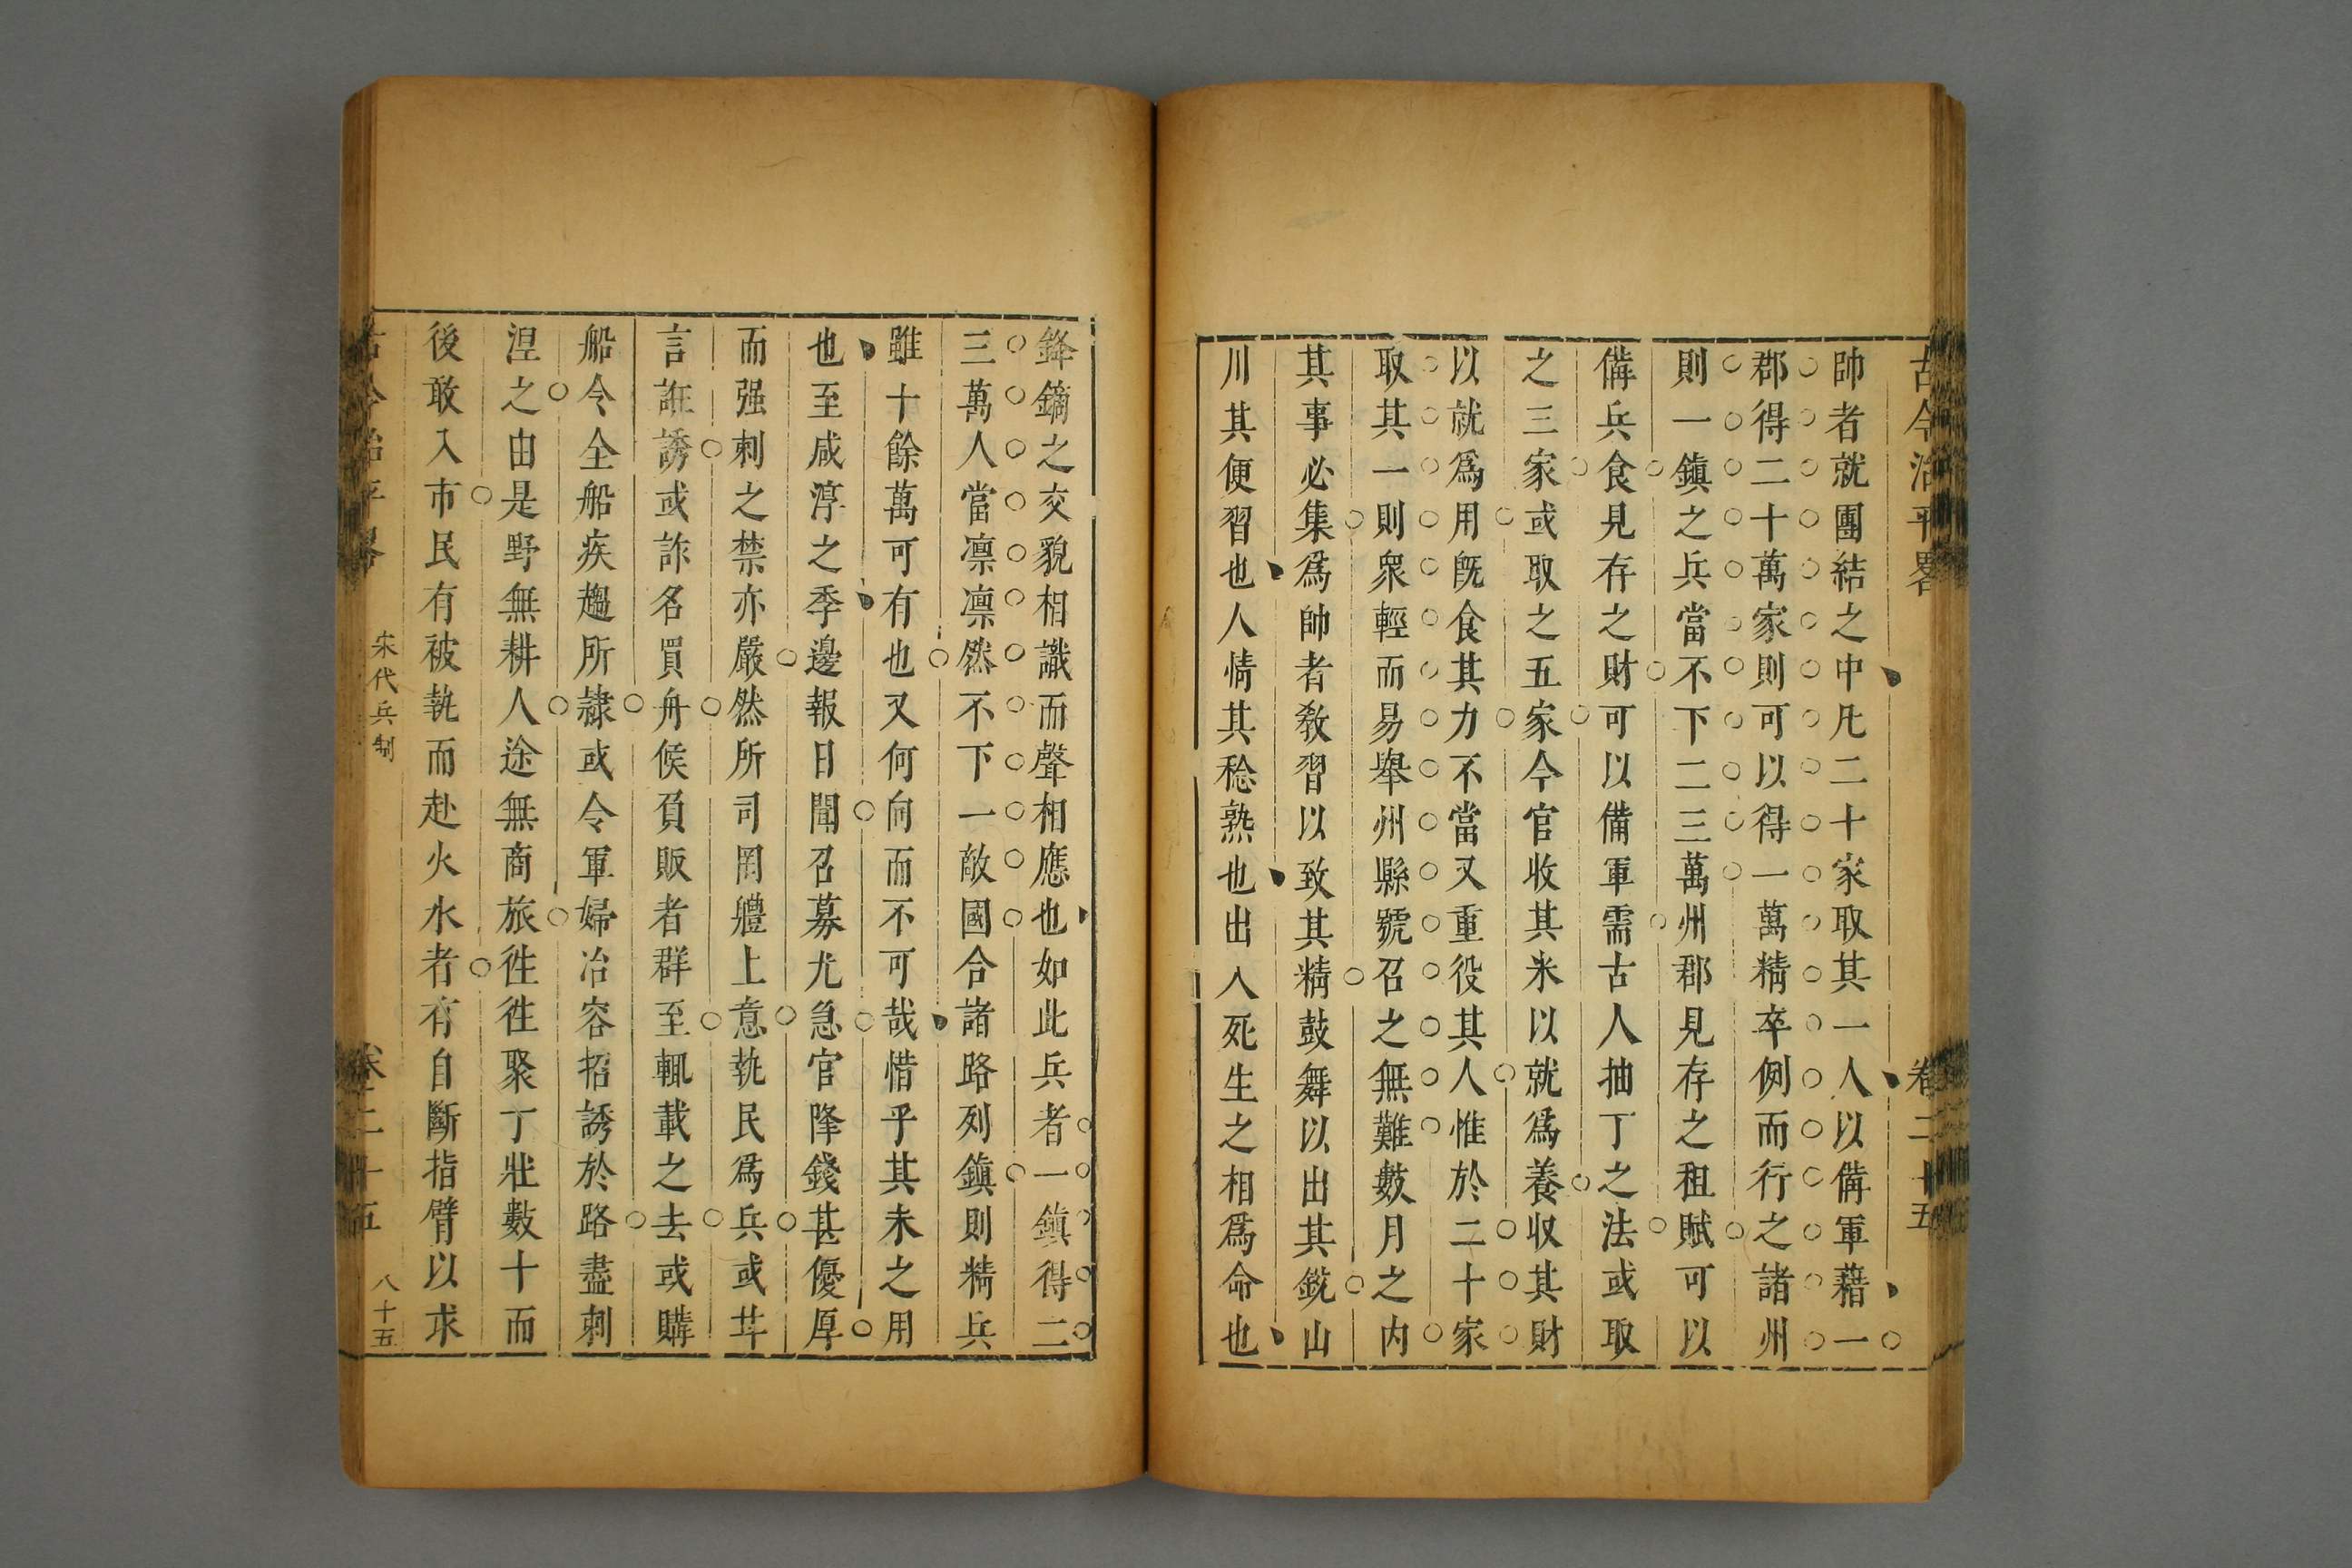 古今治平畧 卷二十五
帥者就團結之中凡二十家取其一人以備軍藉一
郡得二十萬家則可以得一萬精卒例而行之諸州
則一鎮之兵當不下二三萬州郡見存之租賦可以
備兵食見存之財可以備軍需古人抽丁之法或取
之三家或取之五家今官收其米以就爲養收其財
以就爲用旣食其力不當又重役其人惟於二十家
取其一則衆輕而易舉州縣號召之無難數月之内
其事必集爲帥者教習以致其精鼓舞以出其銳山
川其便習也人情其稔熟也出入死生之相爲命也
鋒鏑之交貌相識而聲相應也如此兵者一鎮得二
三萬人當凛凛然不下一敵國合諸路列鎮則精兵
雖十餘萬可有也又何向而不可哉惜乎其未之用
也至咸淳之季邊報日聞召募尤急官降錢甚優厚
而强刺之禁亦嚴然所司罔體上意執民爲兵或甘
言誑誘或詐名買舟候負販者群至輒載之去或購
船令全船疾趨所隷或令軍婦冶容招誘於路盡刺
涅之由是野無耕人途無商旅徃徃聚丁壯數十而
後敢入市民有被執而赴火水者有自斷指臂以求
古今治平畧 宋代兵制 卷二十五 八十五